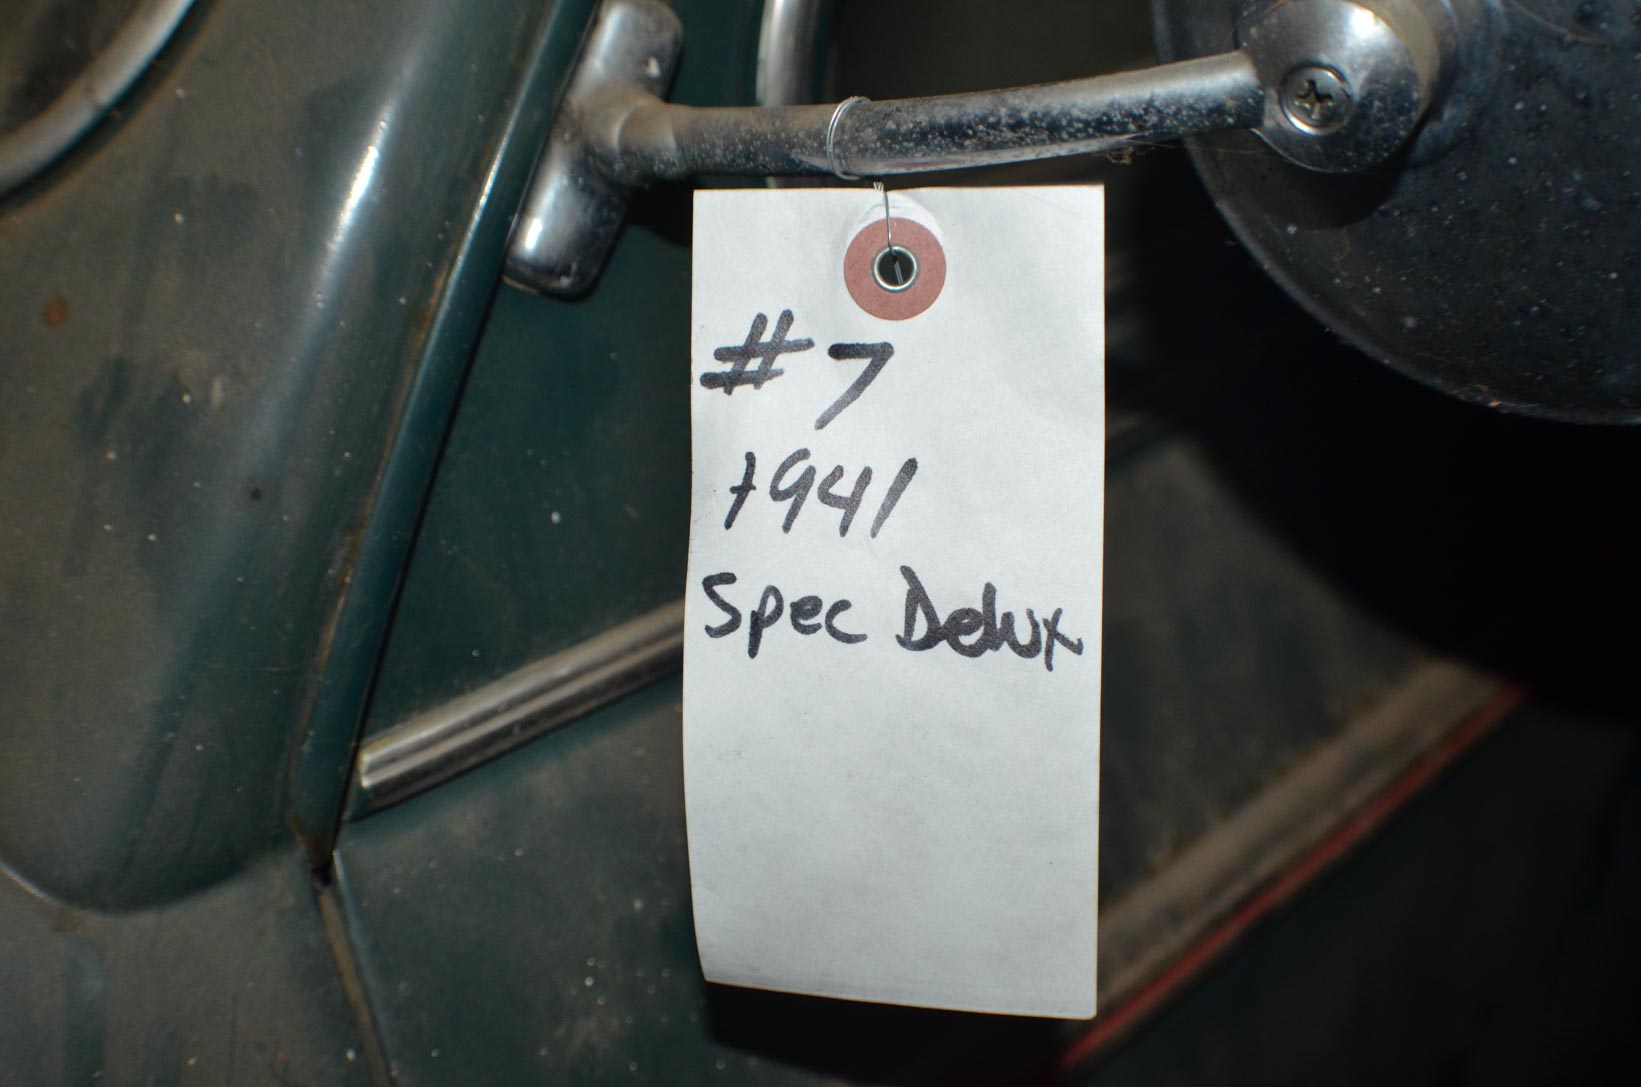 #7
1941
Spec Delux